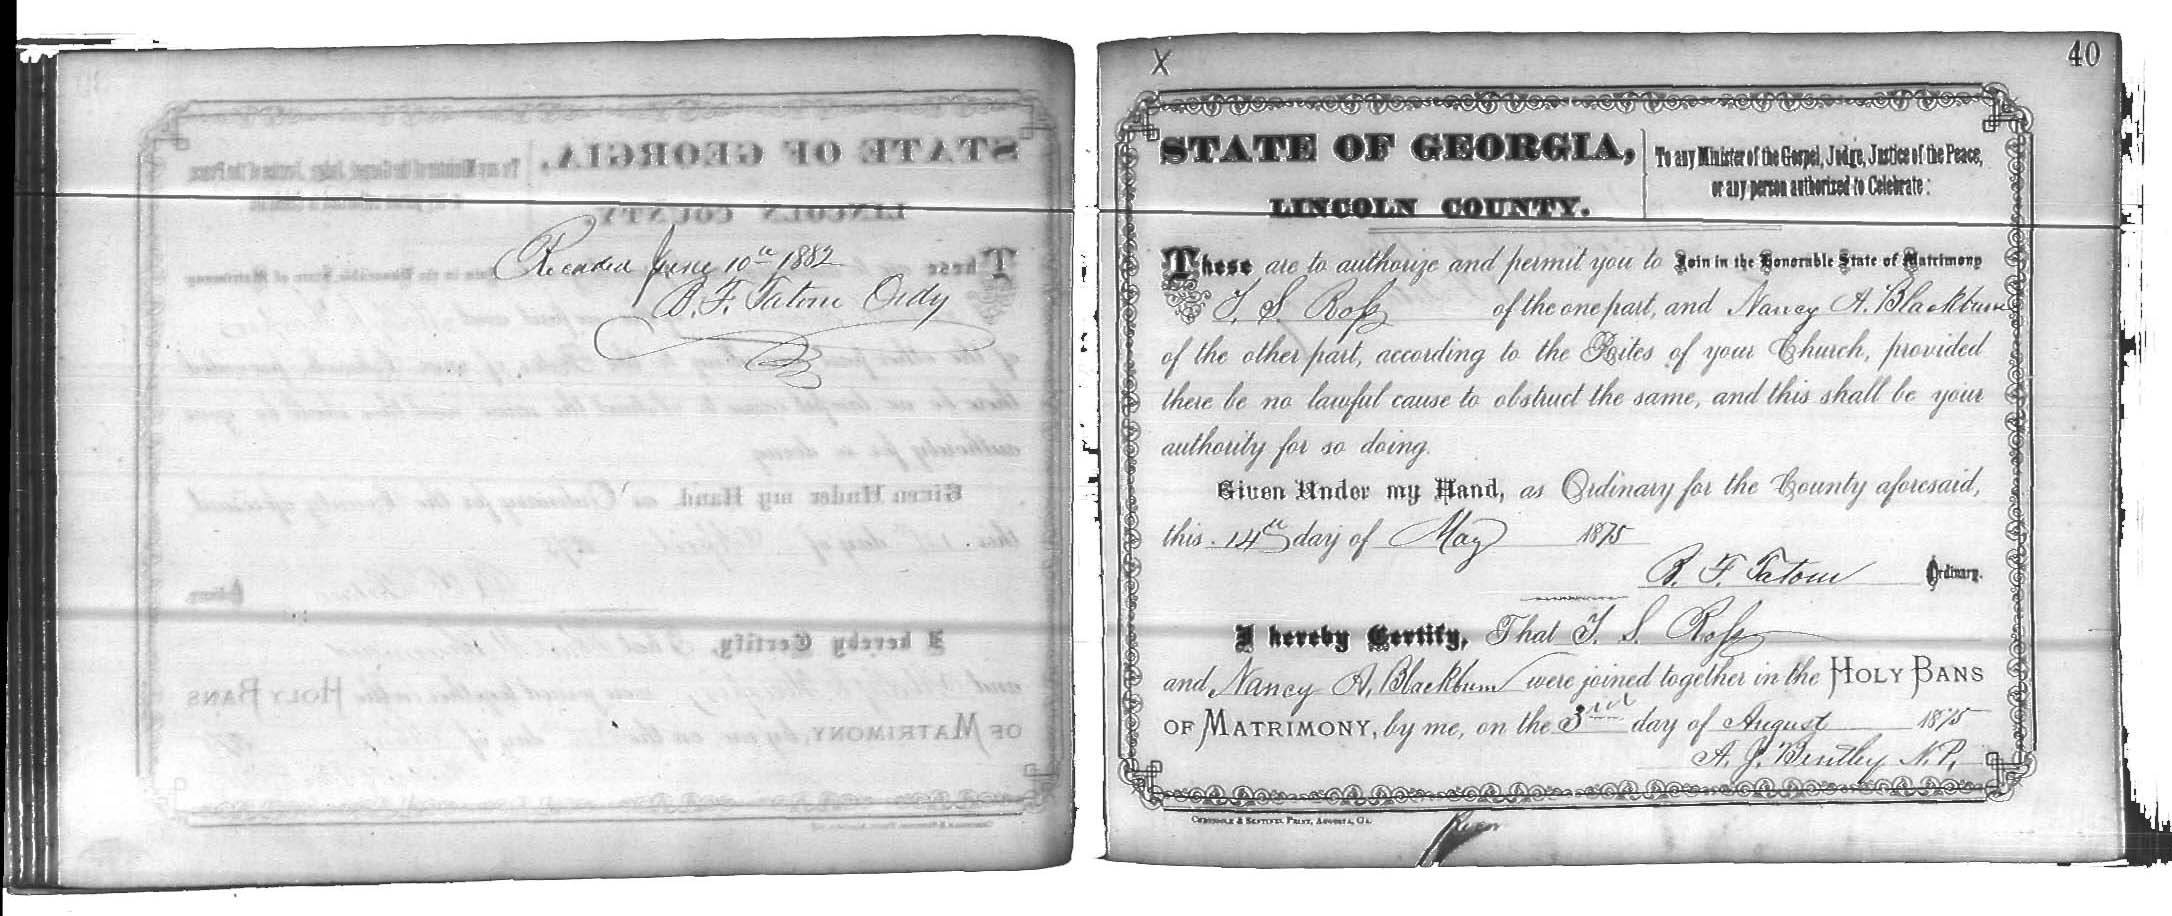 Recorded June 10th 1882
B. F. Tatom Ordy
X
40
STATE OF GEORGIA,
LINCOLN COUNTY.
To any Minister of the Gospel, Judge, Justice of the Peace,
or any person authorized to Celebrate:
These are to authorize and permit you to Join in the Honorable State of Matrimony
T. S. Ross of the one part, and Nancy A. Blackburn
of the other part, according to the Rites of your Church, provided
there be no lawful cause to obstruct the same, and this shall be your
authority for so doing.
Given Under my Hand, as Ordinary for the County aforesaid,
this 14th day of May 1875
B. F. Tatom Ordinary.
I hereby Certify, That T. S. Ross
and Nancy A. Blackburn were joined together in the HOLY BANS
OF MATRIMONY, by me, on the 3rd day of August 1875
A. J. Bentley N.P.
CHRONICLE & SENTINEL PRINT, AUGUSTA, GA.